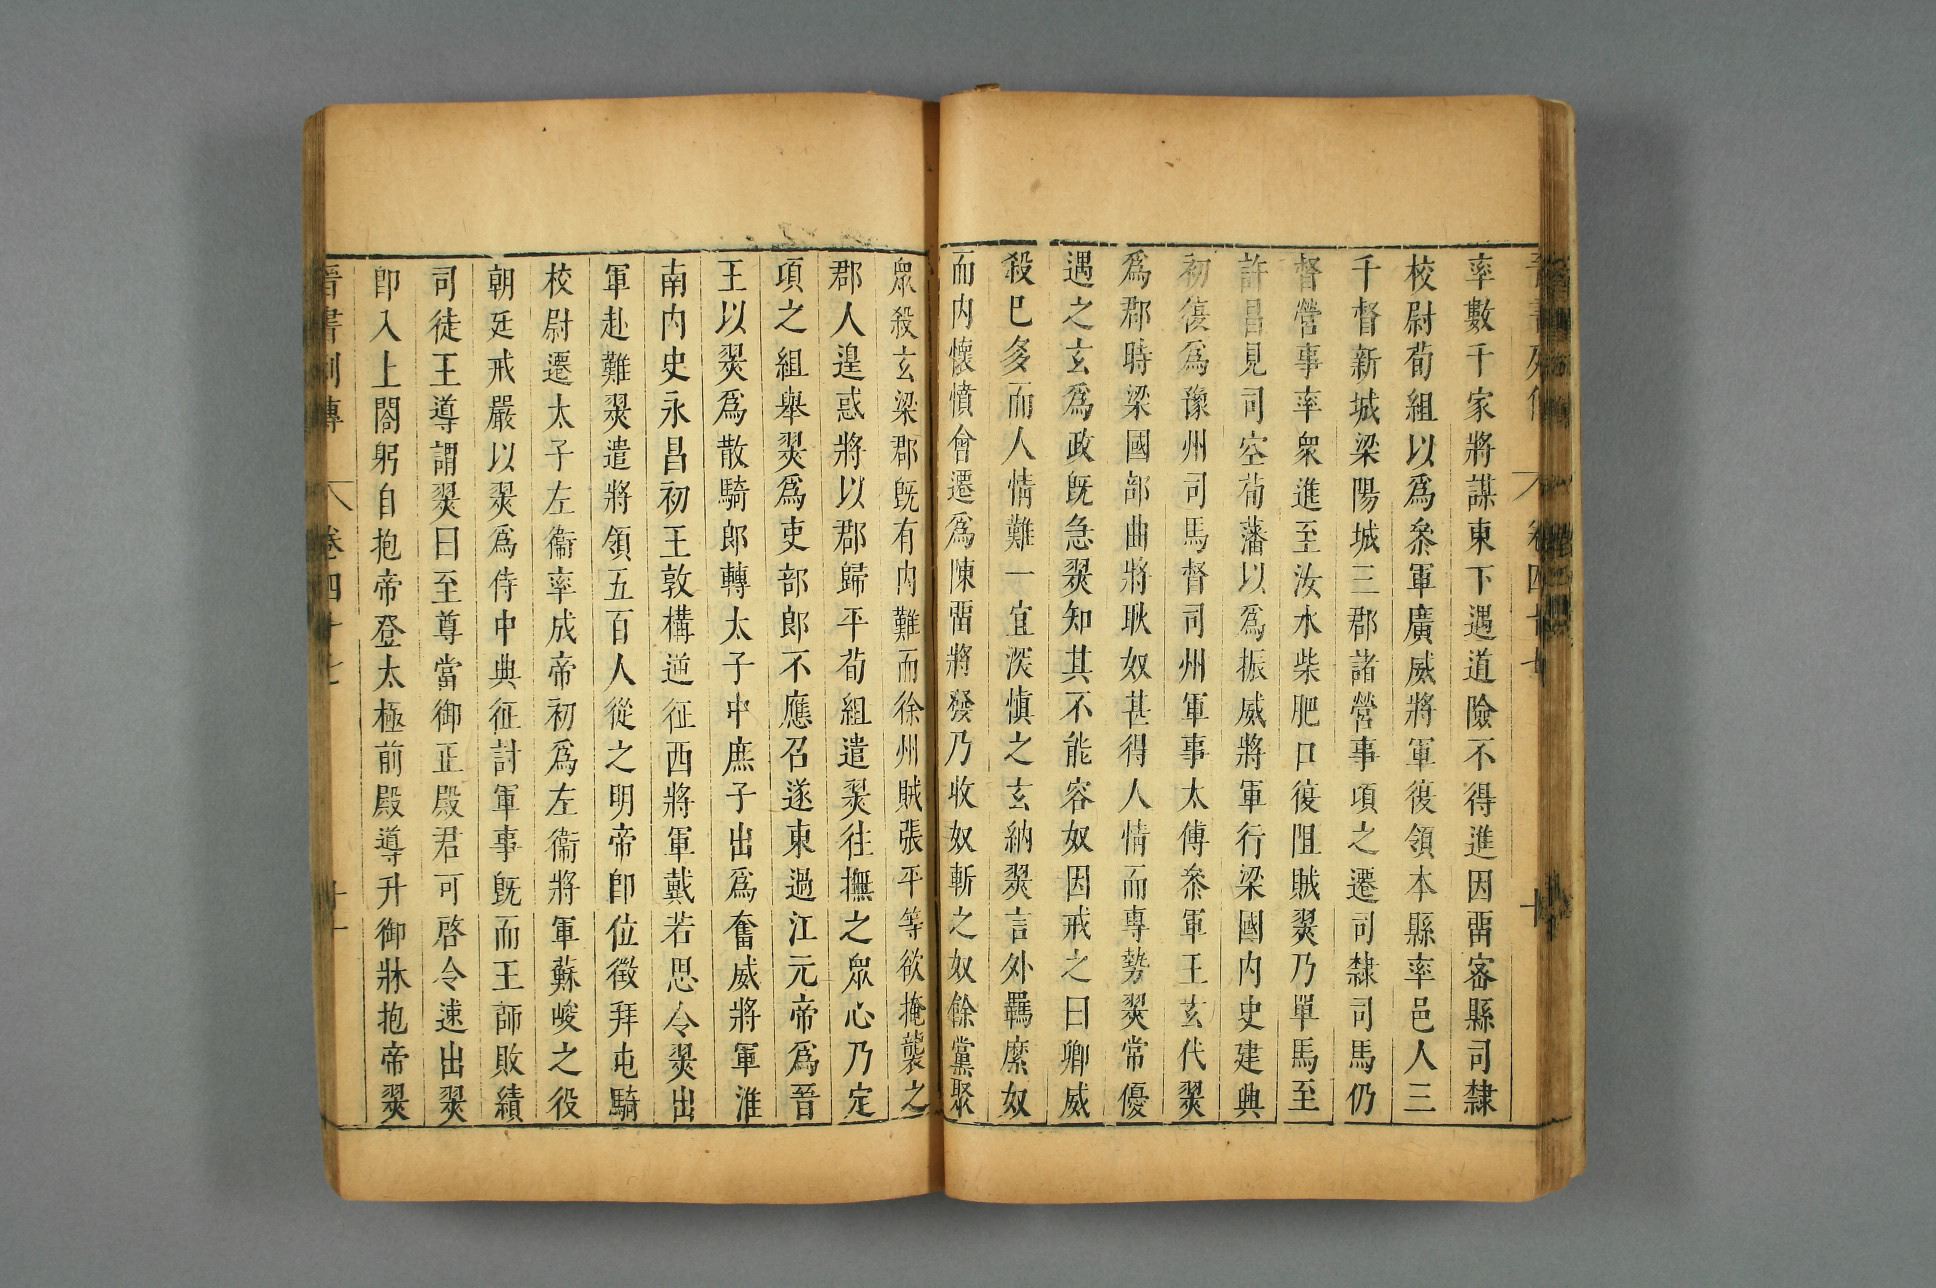 晉書列傳 卷四十七 十
率數千家將謀東下遇道險不得進因畱密縣司隸
校尉荀組以爲叅軍廣威將軍復領本縣率邑人三
千督新城梁陽城三郡諸營事項之遷司隸司馬仍
督營事率衆進至汝水柴肥口復阻賊翜乃單馬至
許昌見司空荀藩以爲振威將軍行梁國內史建興
初復爲豫州司馬督司州軍事太傅叅軍王玄代翜
爲郡時梁國部曲將耿奴甚得人情而專勢翜常優
遇之玄爲政旣急翜知其不能容奴因戒之曰卿威
殺巳多而人情難一宜深愼之玄納翜言外羈縻奴
而內懷憤會遷爲陳畱將發乃收奴斬之奴餘黨聚
衆殺玄梁郡旣有內難而徐州賊張平等欲掩襲之
郡人遑惑將以郡歸平荀組遣翜往撫之衆心乃定
項之組舉翜爲吏部郎不應召遂東過江元帝爲晉
王以翜爲散騎郎轉太子中庶子出爲奮威將軍淮
南內史永昌初王敦構逆征西將軍戴若思令翜出
軍赴難翜遣將領五百人從之明帝卽位徵拜屯騎
校尉遷太子左衞率成帝初爲左衞將軍蘇峻之役
朝廷戒嚴以翜爲侍中典征討軍事旣而王師敗績
司徒王導謂翜曰至尊當御正殿君可啓令速出翜
卽入上閤躬自抱帝登太極前殿導升御牀抱帝翜
晉書列傳 卷四十七 十一